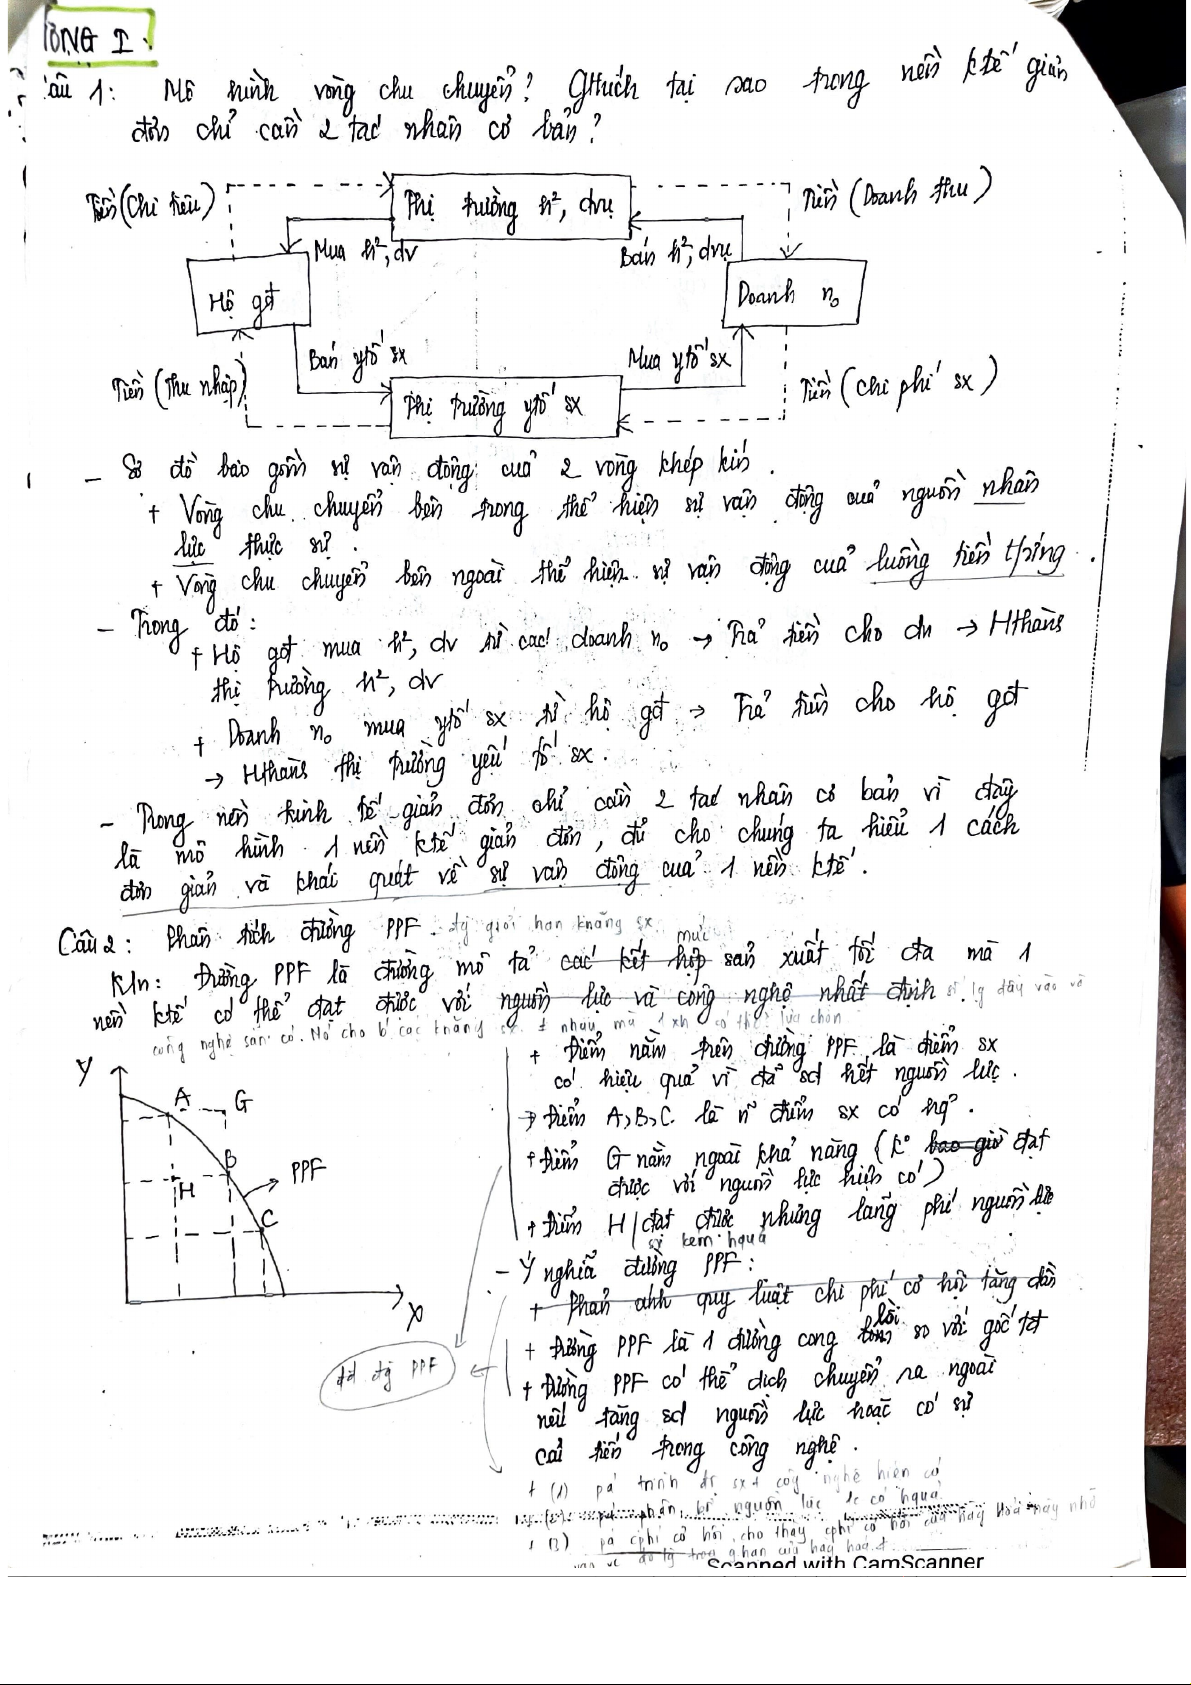 ƯƠNG I.
Câu 1: Mô hình vòng chu chuyển? Gthích tại sao trong nền ktế giản
đơn chỉ cần 2 tác nhân cơ bản?
Tiền (Chi tiêu)
Thị trường h², dvụ
Tiền (Doanh thu)
Mua h², dv
Bán h², dvụ
Hộ gđ
Doanh n₀
Bán ytố sx
Mua ytố sx
Tiền (Thu nhập)
Thị trường ytố sx
Tiền (chi phí sx)
- Sơ đồ bao gồm sự vận động của 2 vòng khép kín.
+ Vòng chu chuyển bên trong thể hiện sự vận động của nguồn nhân
lực thực sự.
+ Vòng chu chuyển bên ngoài thể hiện sự vận động của luồng tiền t/ứng.
- Trong đó:
+ Hộ gđ mua h², dv từ các doanh n₀ → Trả tiền cho dn → Hthàns
thị trường h², dv
+ Doanh n₀ mua ytố sx từ hộ gđ → Trả tiền cho hộ gđ
→ Hthàns thị trường yếu tố sx.
- Trong nền kinh tế giản đơn chỉ cần 2 tác nhân cơ bản vì đây
là mô hình 1 nền ktế giản đơn, đủ cho chúng ta hiểu 1 cách
đơn giản và khái quát về sự vận động của 1 nền ktế.
Câu 2: Phân tích đường PPF. đg giới hạn knăng sx
mức
K/n: Đường PPF là đường mô tả các kết hợp sản xuất tối đa mà 1
nền ktế có thể đạt được với nguồn lực và công nghệ nhất định
công nghệ sẵn có. Nó cho b các knăng sx ≠ nhau mà 1 xh có thể lựa chọn
Y
A
G
B
H
PPF
C
X
+ Điểm nằm trên đường PPF là điểm sx
có hiệu quả vì đã sd hết nguồn lực.
→ Điểm A, B, C là n~ điểm sx có hq².
+ Điểm G nằm ngoài khả năng (k° bao giờ đạt
được với nguồn lực hiện có)
+ Điểm H / đạt được nhưng lãng phí nguồn lực
sx kém hquả
- Ý nghĩa đường PPF:
+ Phản ánh quy luật chi phí cơ hội tăng dần
lồi
+ Đường PPF là 1 đường cong so với gốc tđ
+ Đường PPF có thể dịch chuyển ra ngoài
nếu tăng sd nguồn lực hoặc có sự
cải tiến trong công nghệ.
đđ đg PPF
+ (1) pá trình độ sx + côg nghệ hiện có
+ (2) pá phân bổ nguồn lực 1c có hquả
+ (3) pá cphí cơ hội, cho thấy cphí cơ hội của hàg hoá này nhờ
Scanned with CamScanner